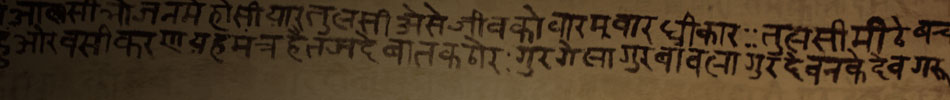 आलसी भोजन मे होसीयार तुलसी अैसे जीव को वारमवार धीकार ::: तुलसी मीठे बच
हु और वसीकरण यह मंत्र है तज दे बात कठोर : गुर गेला गुर बावला गुर देवन के देव गरू